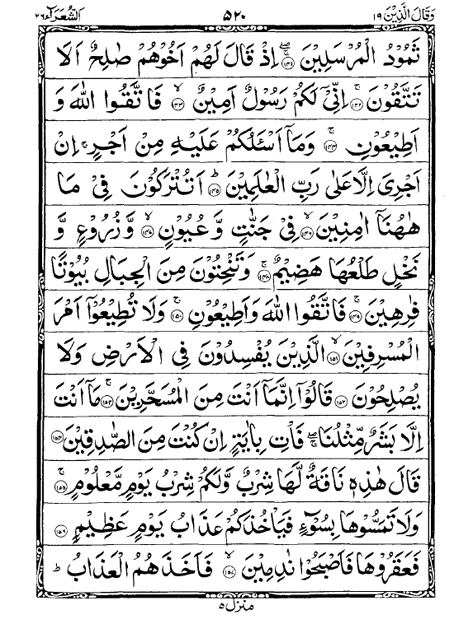 وَقَالَ الَّذِيْنَ ١٩ ٥٢٠ الشُّعَرَآء ٢٦
ثَمُوْدُ الْمُرْسَلِيْنَ ۚ﴿١٤١﴾ اِذْ قَالَ لَهُمْ اَخُوْهُمْ صٰلِحٌ اَلَا
تَتَّقُوْنَ ۚ﴿١٤٢﴾ اِنِّىْ لَكُمْ رَسُوْلٌ اَمِيْنٌ ۙ﴿١٤٣﴾ فَاتَّقُوا اللّٰهَ وَ
اَطِيْعُوْنِ ۚ﴿١٤٤﴾ وَمَاۤ اَسْئَلُكُمْ عَلَيْهِ مِنْ اَجْرٍ ۚ اِنْ
اَجْرِىَ اِلَّا عَلٰى رَبِّ الْعٰلَمِيْنَ ؕ﴿١٤٥﴾ اَتُتْرَكُوْنَ فِىْ مَا
هٰهُنَاۤ اٰمِنِيْنَ ۙ﴿١٤٦﴾ فِىْ جَنّٰتٍ وَّعُيُوْنٍ ۙ﴿١٤٧﴾ وَّزُرُوْعٍ وَّ
نَخْلٍ طَلْعُهَا هَضِيْمٌ ۚ﴿١٤٨﴾ وَتَنْحِتُوْنَ مِنَ الْجِبَالِ بُيُوْتًا
فٰرِهِيْنَ ۚ﴿١٤٩﴾ فَاتَّقُوا اللّٰهَ وَاَطِيْعُوْنِ ۚ﴿١٥٠﴾ وَلَا تُطِيْعُوْۤا اَمْرَ
الْمُسْرِفِيْنَ ۙ﴿١٥١﴾ الَّذِيْنَ يُفْسِدُوْنَ فِى الْاَرْضِ وَلَا
يُصْلِحُوْنَ ﴿١٥٢﴾ قَالُوْۤا اِنَّمَاۤ اَنْتَ مِنَ الْمُسَحَّرِيْنَ ۚ﴿١٥٣﴾ مَاۤ اَنْتَ
اِلَّا بَشَرٌ مِّثْلُنَا ۖۚ فَاْتِ بِاٰيَةٍ اِنْ كُنْتَ مِنَ الصّٰدِقِيْنَ ﴿١٥٤﴾
قَالَ هٰذِهٖ نَاقَةٌ لَّهَا شِرْبٌ وَّلَكُمْ شِرْبُ يَوْمٍ مَّعْلُوْمٍ ۚ﴿١٥٥﴾
وَلَا تَمَسُّوْهَا بِسُوْٓءٍ فَيَاْخُذَكُمْ عَذَابُ يَوْمٍ عَظِيْمٍ ﴿١٥٦﴾
فَعَقَرُوْهَا فَاَصْبَحُوْا نٰدِمِيْنَ ۙ﴿١٥٧﴾ فَاَخَذَهُمُ الْعَذَابُ ؕ
منزل ٥